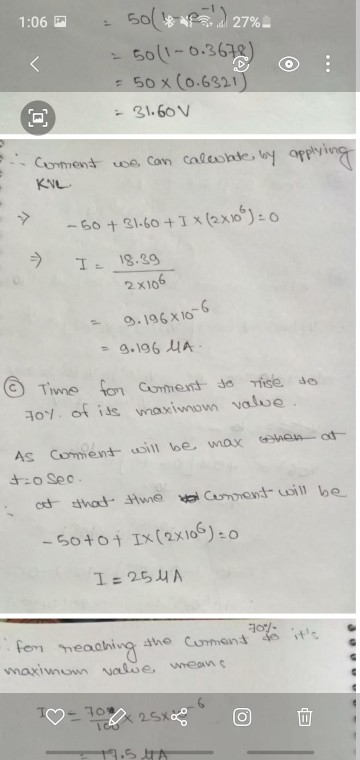 1:06 27%
= 50(1-e⁻¹)
= 50(1-0.3678)
= 50×(0.6321)
= 31.60V
∴ Current we can calculate by applying
KVL
⇒ -50+31.60+I×(2×10⁶)=0
⇒ I = 18.39
2×10⁶
= 9.196×10⁻⁶
= 9.196 μA.
ⓒ Time for current to rise to
70% of its maximum value.
As current will be max when at
t=0 Sec.
∴ at that time current will be
-50+0+I×(2×10⁶)=0
I = 25μA
for reaching the current 70% to it's
maximum value means
I = 70/100 ×25× -6
= 17.5 μA